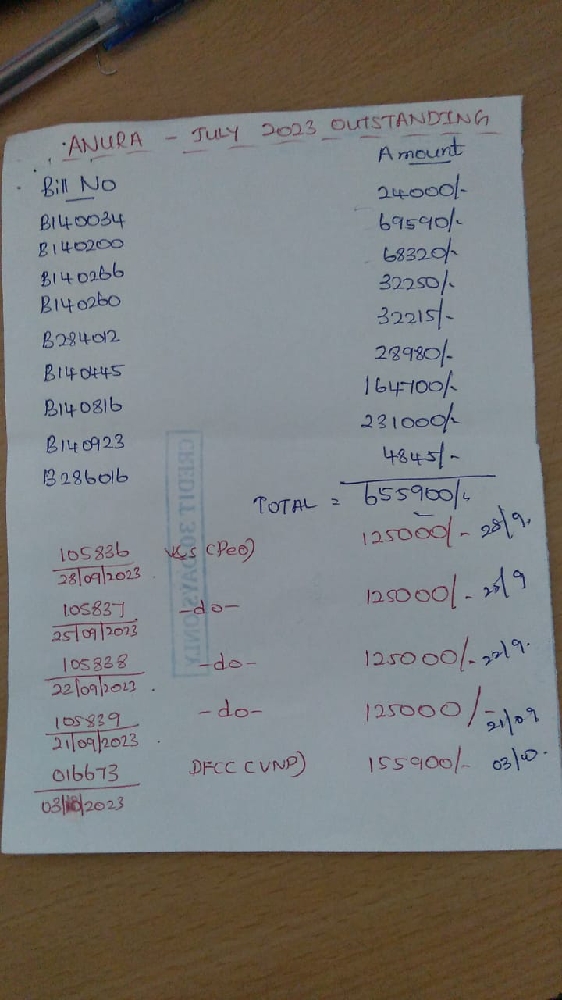 ANURA - JULY 2023 OUTSTANDING
Bill No Amount
B140034 24000/-
B140200 69590/-
B140266 68320/-
B140260 32250/-
B284012 32215/-
B140445 28980/-
B140816 164700/-
B140923 231000/-
B286016 4845/-
TOTAL = 655900/-
105836 (Peo) 125000/- 28/9.
28/09/2023
105837 -do- 125000/- 25/9
25/09/2023
105838 -do- 125000/- 22/9.
22/09/2023.
105839 -do- 125000/- 21/09
21/09/2023.
016673 DFCC (VNP) 155900/- 03/10.
03/10/2023
CREDIT 30 DAYS ONLY